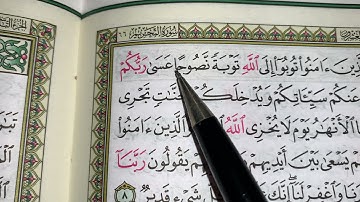 سُورَةُ التَّحْرِيمِ ٦٦
ءَامَنُوا۟ تُوبُوٓا۟ إِلَى ٱللَّهِ تَوْبَةً نَّصُوحًا عَسَىٰ رَبُّكُمْ
عَنكُمْ سَيِّـَٔاتِكُمْ وَيُدْخِلَكُمْ جَنَّٰتٍ تَجْرِى
ٱلْأَنْهَٰرُ يَوْمَ لَا يُخْزِى ٱللَّهُ وَٱلَّذِينَ ءَامَنُوا۟
يَسْعَىٰ بَيْنَ أَيْدِيهِمْ يَقُولُونَ رَبَّنَآ
وَٱغْفِرْ لَنَآ إِنَّكَ شَىْءٍ قَدِيرٌ ٨